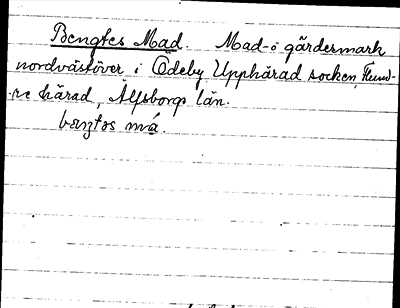 Bengtes Mad. Mad o gärdesmark
nordvästöver i Ödeby, Upphärad socken, Flund-
re härad, Älfsborgs län.